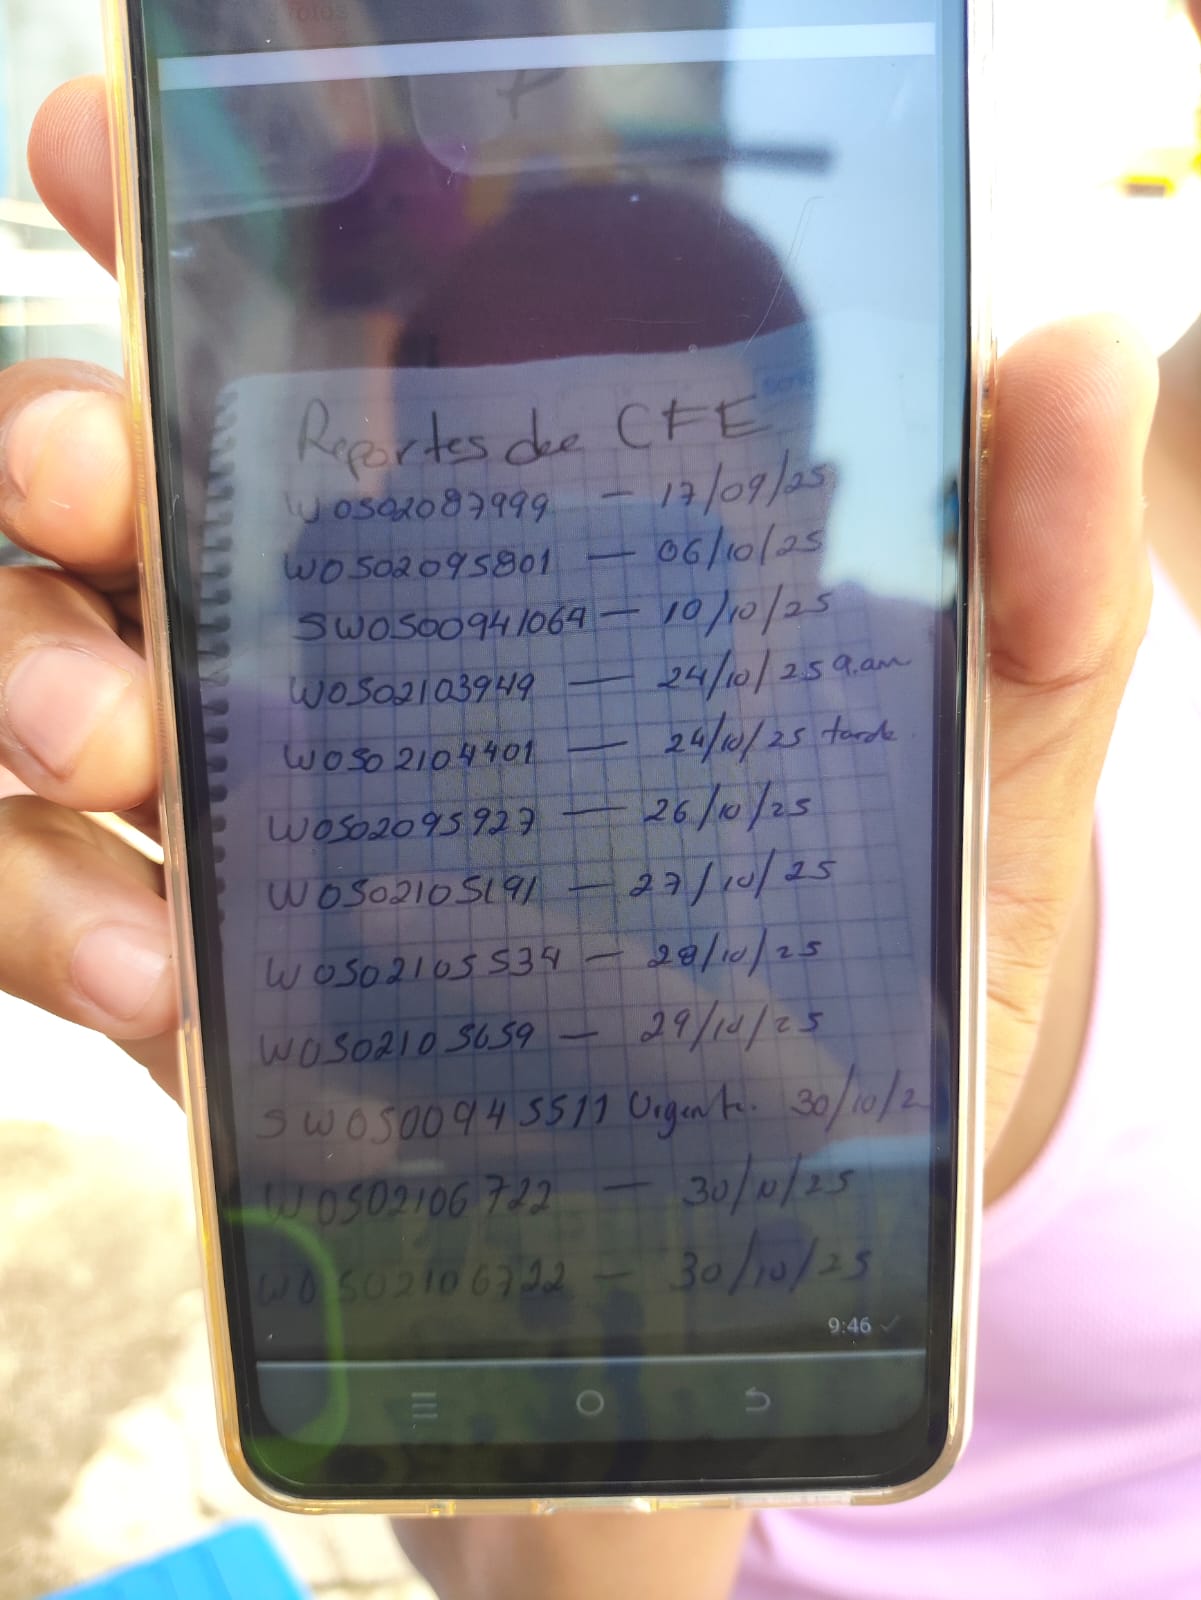 Reportes de CFE
WOS02087999 — 17/09/25
WOS02095801 — 06/10/25
SWOS00941064 — 10/10/25
WOS02103949 — 24/10/25 9.am
WOS02104401 — 24/10/25 tarde
WOS02095927 — 26/10/25
WOS02105191 — 27/10/25
WOS02105534 — 28/10/25
WOS02105659 — 29/10/25
SWOS00945511 Urgente. 30/10/2
WOS02106722 — 30/10/25
WOS02106722 — 30/10/25
9:46